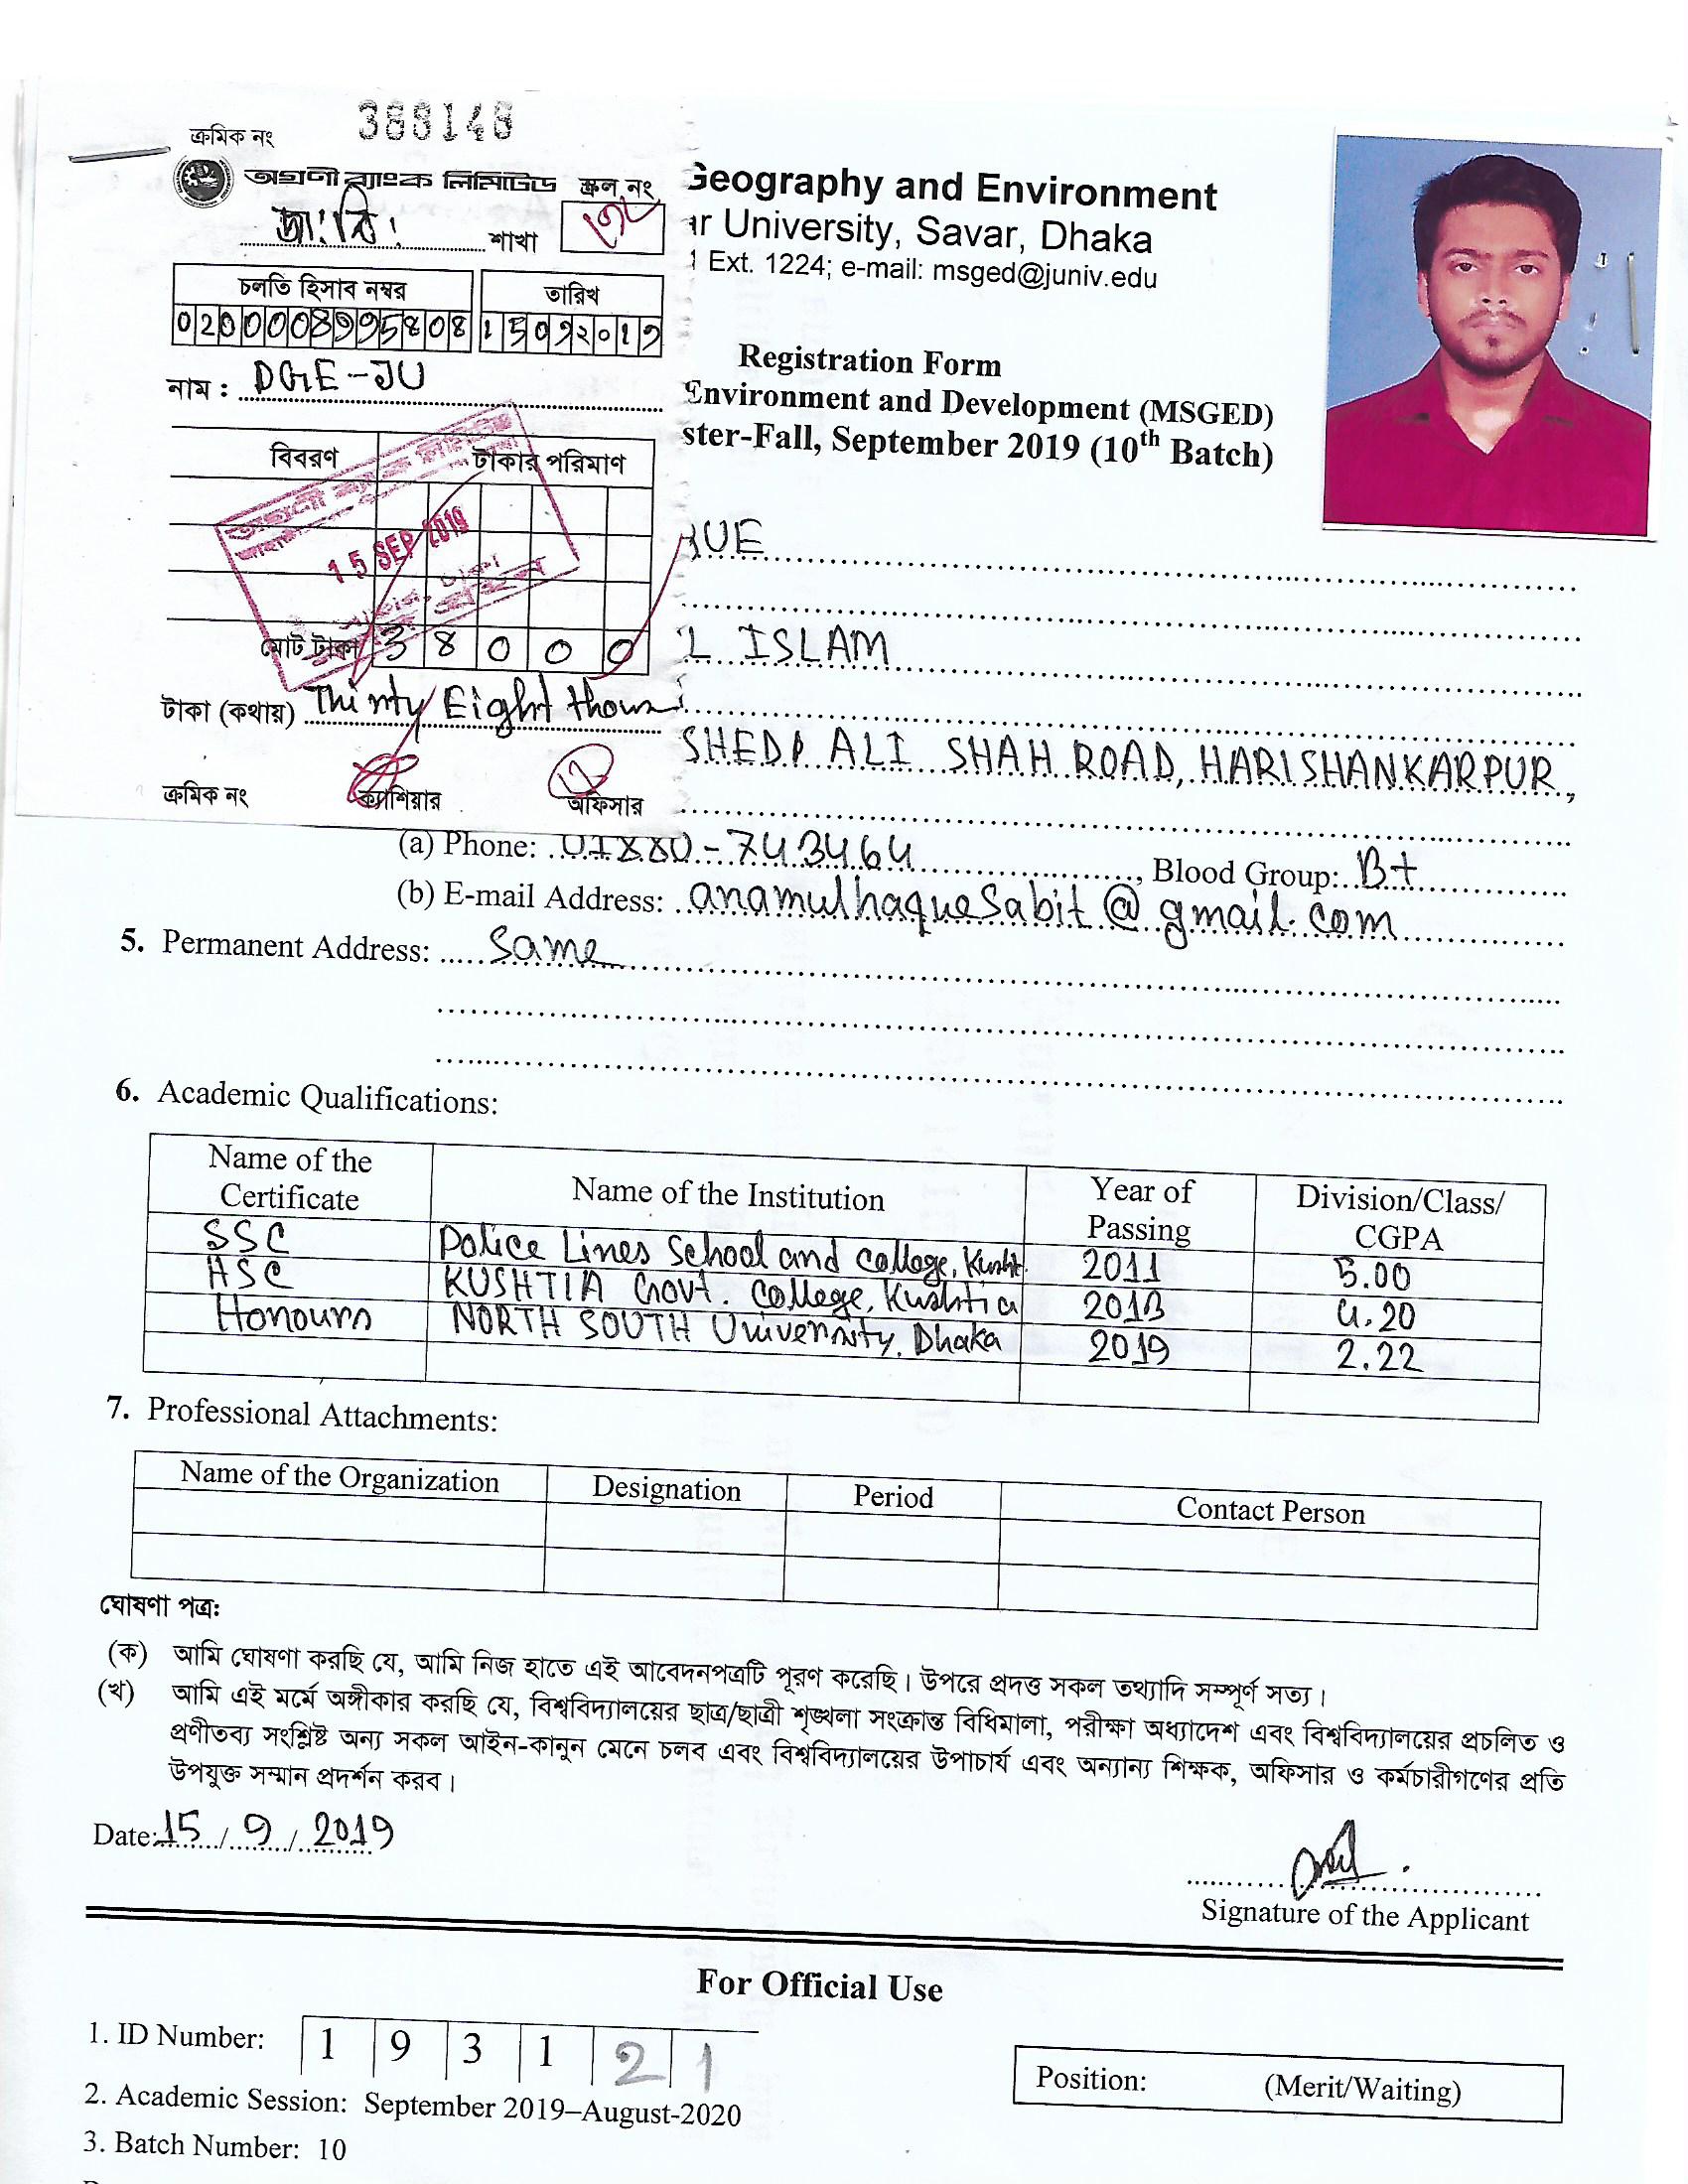 ক্রমিক নং 388148
অগ্রণী ব্যাংক লিমিটেড স্ক্রল নং
জা:বি: শাখা
চলতি হিসাব নম্বর তারিখ
0200008995808 15092019
নাম : DGE-JU
বিবরণ টাকার পরিমাণ
15 SEP 2019
মোট টাকা 38000
টাকা (কথায়) Thirty Eight thous
ক্রমিক নং ক্যাশিয়ার অফিসার
Geography and Environment
ar University, Savar, Dhaka
Ext. 1224; e-mail: msged@juniv.edu
Registration Form
Environment and Development (MSGED)
ster-Fall, September 2019 (10th Batch)
QUE
L ISLAM
SHEDP ALI SHAH ROAD, HARISHANKARPUR,
(a) Phone: 01880-743464, Blood Group: B+
(b) E-mail Address: anamulhaquesabit@gmail.com
5. Permanent Address: Same
6. Academic Qualifications:
Name of the Certificate Name of the Institution Year of Passing Division/Class/CGPA
SSC Police Lines School and college, Kusht 2011 5.00
HSC KUSHTIA Govt. College, Kushtia 2013 4.20
Honours NORTH SOUTH University, Dhaka 2019 2.22
7. Professional Attachments:
Name of the Organization Designation Period Contact Person
ঘোষণা পত্র:
(ক) আমি ঘোষণা করছি যে, আমি নিজ হাতে এই আবেদনপত্রটি পূরণ করেছি। উপরে প্রদত্ত সকল তথ্যাদি সম্পূর্ণ সত্য।
(খ) আমি এই মর্মে অঙ্গীকার করছি যে, বিশ্ববিদ্যালয়ের ছাত্র/ছাত্রী শৃঙ্খলা সংক্রান্ত বিধিমালা, পরীক্ষা অধ্যাদেশ এবং বিশ্ববিদ্যালয়ের প্রচলিত ও
প্রণীতব্য সংশ্লিষ্ট অন্য সকল আইন-কানুন মেনে চলব এবং বিশ্ববিদ্যালয়ের উপাচার্য এবং অন্যান্য শিক্ষক, অফিসার ও কর্মচারীগণের প্রতি
উপযুক্ত সম্মান প্রদর্শন করব।
Date: 15/9/2019
Signature of the Applicant
For Official Use
1. ID Number: 193121
Position: (Merit/Waiting)
2. Academic Session: September 2019–August-2020
3. Batch Number: 10